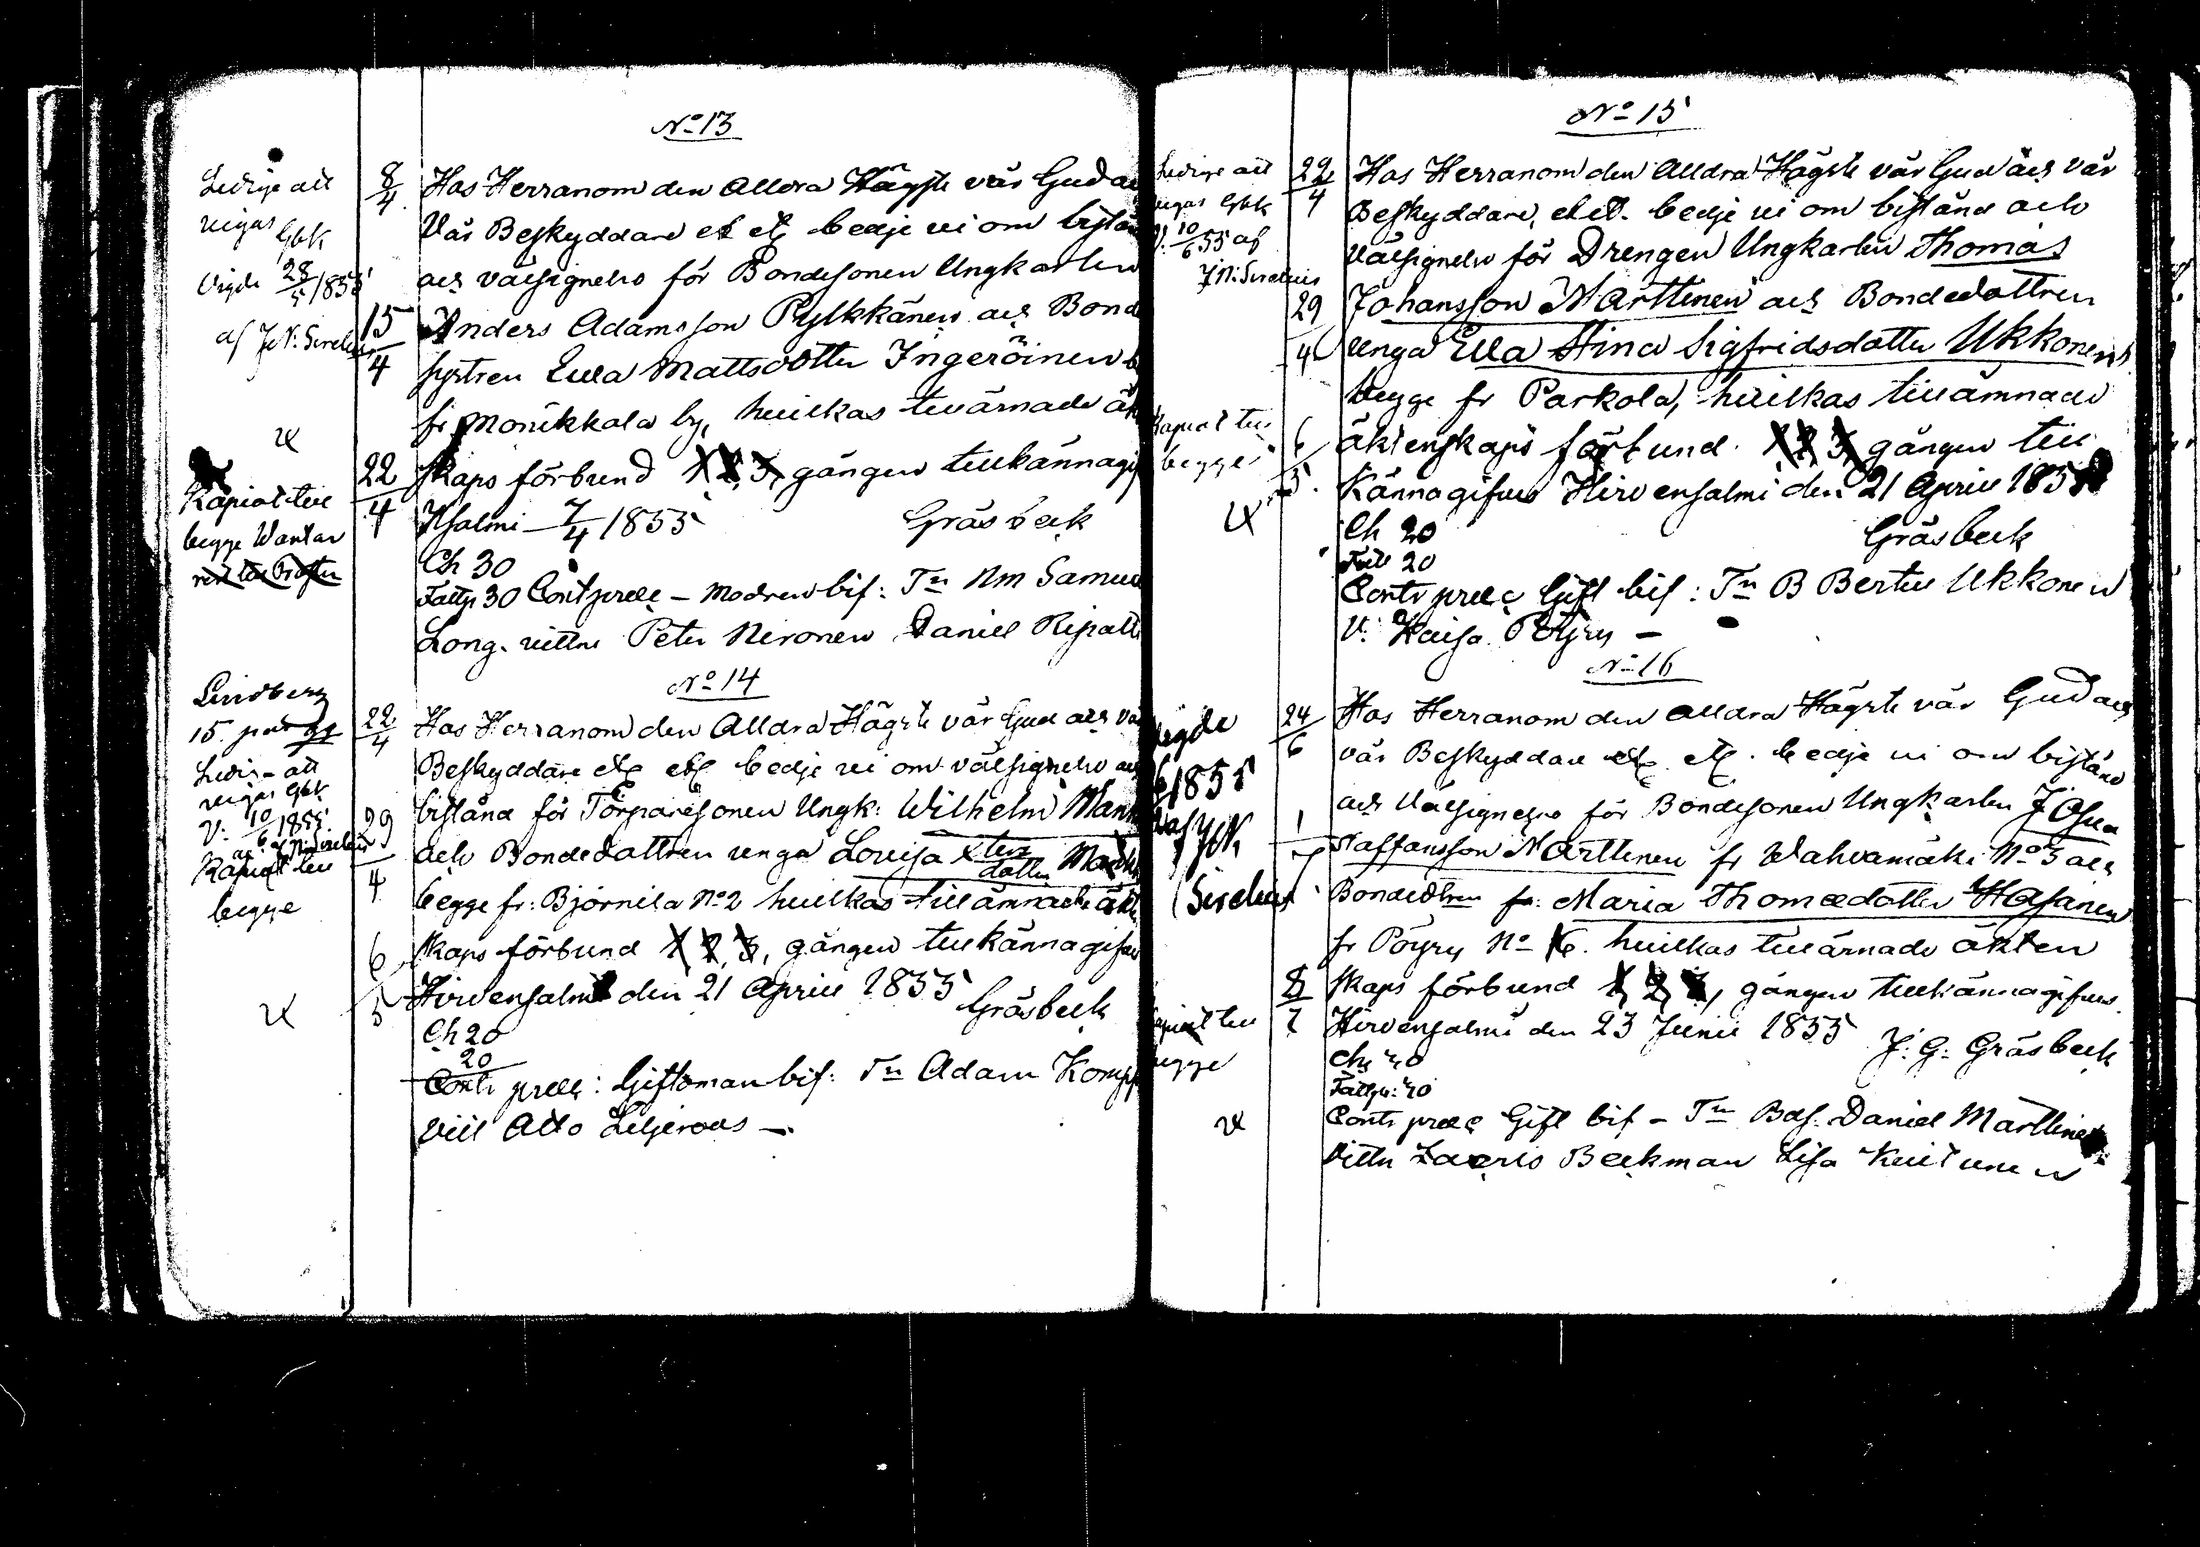 No 13
Ledige att
vigas Gbk
Vigde 28/5 1855
af J. N. Sirelius
8/4
15/4
22/4
Hos Herranom den Alldra Högste vår Gud
Vår Beskyddare etc etc bedje vi om bistån
och välsignelse för Bondesonen Ungkarlen
Anders Adamsson Pylkkänen och Bond
systren Ewa Mattsdotter Ingeröinen
fr Monikkala by, hvilkas tillärnade äk
skaps förbund 1, 2, 3, gången tillkännagif
Hsalmi 7/4 1855 Gräsbeck
Ch 30
Fattg 30 Cont præc – Modren bif: Tn Nm Samuel
Long. vittne Peter Nironen Daniel Ripatti
Kapiat till
begge Wantar
No 14
Lindberg
15. pat
Ledig att
vigas Gbk
V: 10/6 1855
Kapiat till
begge
22/4
29/4
6/5
Hos Herranom den Alldra Högste vår Gud och vå
Beskyddare etc etc bedje vi om välsignelse
bistånd för Torparesonen Ungk: Wilhelm
och Bondedattren unga Lovisa
dotter
begge fr: Björnila No 2 hvilkas tillärnade äkt
skaps förbund 1, 2, 3, gången tillkännagif
Hirvensalmi den 21 Aprill 1855 Gräsbeck
Ch 20
20
Contr præc: Giftoman bif: Tn Adam Komp
Vitt Atto Liljeroos –
No 15
Ledige att
vigas Gbk
V. 10/6 55 af
J. N. Sirelius
Kapiat till
begge
22/4
29/4
6/5
Hos Herranom den Alldra Högste vår Gud och vår
Beskyddare, etc. bedje vi om bistånd och
välsignelse för Drengen Ungkarlen Thomas
Johansson Marttinen och Bondedottren
unga Ewa Stina Sigfridsdotter Ukkonen
begge fr Parkola, hvilkas tillämnade
äktenskaps förbund 1, 2, 3, gången till
kännagifves Hirvensalmi den 21 Aprill 1855
Ch 20 Gräsbeck
20
Contr præc Gift bif: Tn B Bertel Ukkonen
V. Kaisa Pöyry –
No 16
Vigde
1855
af
Sirelius
Kapiat till
begge
24/6
1/7
8/7
Hos Herranom den alldra Högste vår Gud och
vår Beskyddare etc etc. bedje vi om bistånd
och Välsignelse för Bondesonen Ungkarlen Josua
Staffansson Marttinen fr Wahvamäki No 3 och
fr: Maria Thomædotter
fr Pöyry No 6. hvilkas tillärnade äkten
skaps förbund 1, 2, 3, gången tillkännagifves
Hirvensalmi den 23 Junii 1855 J. G. Gräsbeck
Ch 40
Fattg: 40
Contr præc Gift bif – Tn Bds. Daniel Marttinen
Vittn Zacris Beckman Lisa Kuitunen